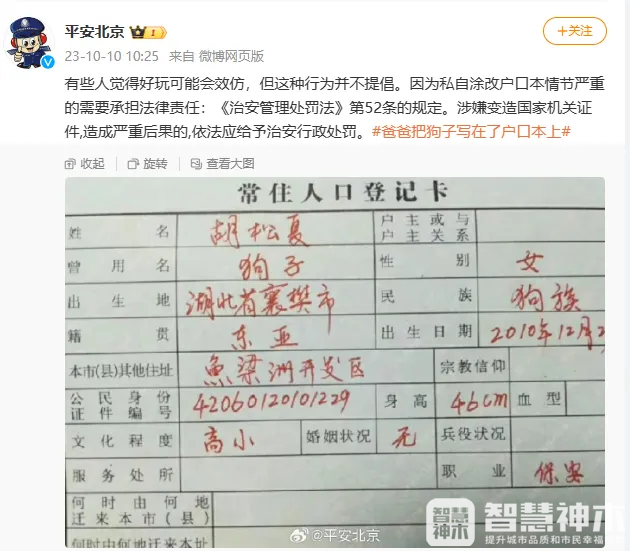 平安北京
+关注
23-10-10 10:25 来自 微博网页版
有些人觉得好玩可能会效仿，但这种行为并不提倡。因为私自涂改户口本情节严重
的需要承担法律责任：《治安管理处罚法》第52条的规定。涉嫌变造国家机关证
件,造成严重后果的,依法应给予治安行政处罚。#爸爸把狗子写在了户口本上#
收起 旋转 查看大图
常住人口登记卡
姓名 胡松夏 户主或与户主关系
曾用名 狗子 性别 女
出生地 湖北省襄樊市 民族 狗族
籍贯 东亚 出生日期 2010年12月2
本市(县)其他住址 魚梁洲开发区 宗教信仰
公民身份证件编号 42060120101229 身高 46cm 血型
文化程度 高小 婚姻状况 无 兵役状况
服务处所 职业 保安
何时由何地迁来本市(县)
何时由何地迁来本址
@平安北京
智慧神木
提升城市品质和市民幸福